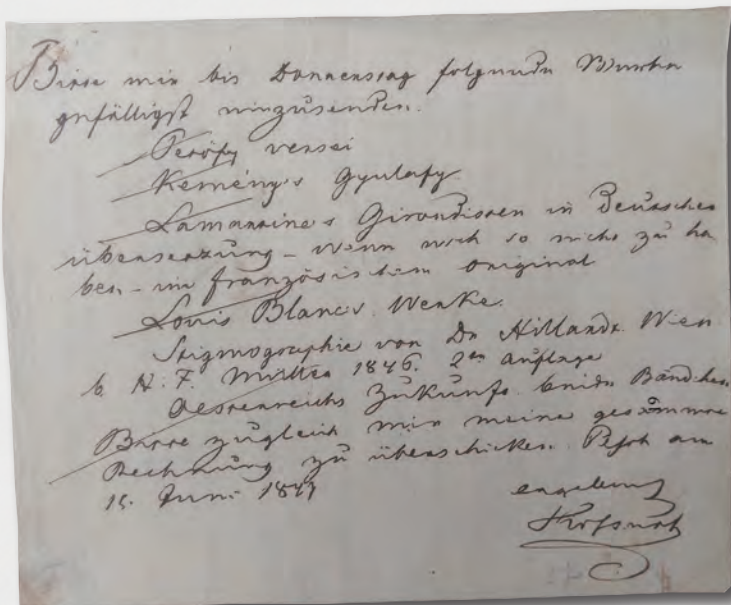 Bitte mir bis Donnerstag folgende Werke
gefälligst einzusenden.
Petöfy versei
Kemény's Gyulafy
Lamartine's Girondisten in deutscher
übersetzung – wenn noch so nicht zu ha
ben – im französischen original
Louis Blanc's Werke.
Stigmographie von Dr Hillardt. Wien
b. H. F. Müller 1846. 2te auflage
Oesterreichs Zukunft. beide Bändchen
Bitte zugleich mir meine gesammte
Rechnung zu überschicken. Pesth am
15. Juni 1847
ergebenst
Kossuth